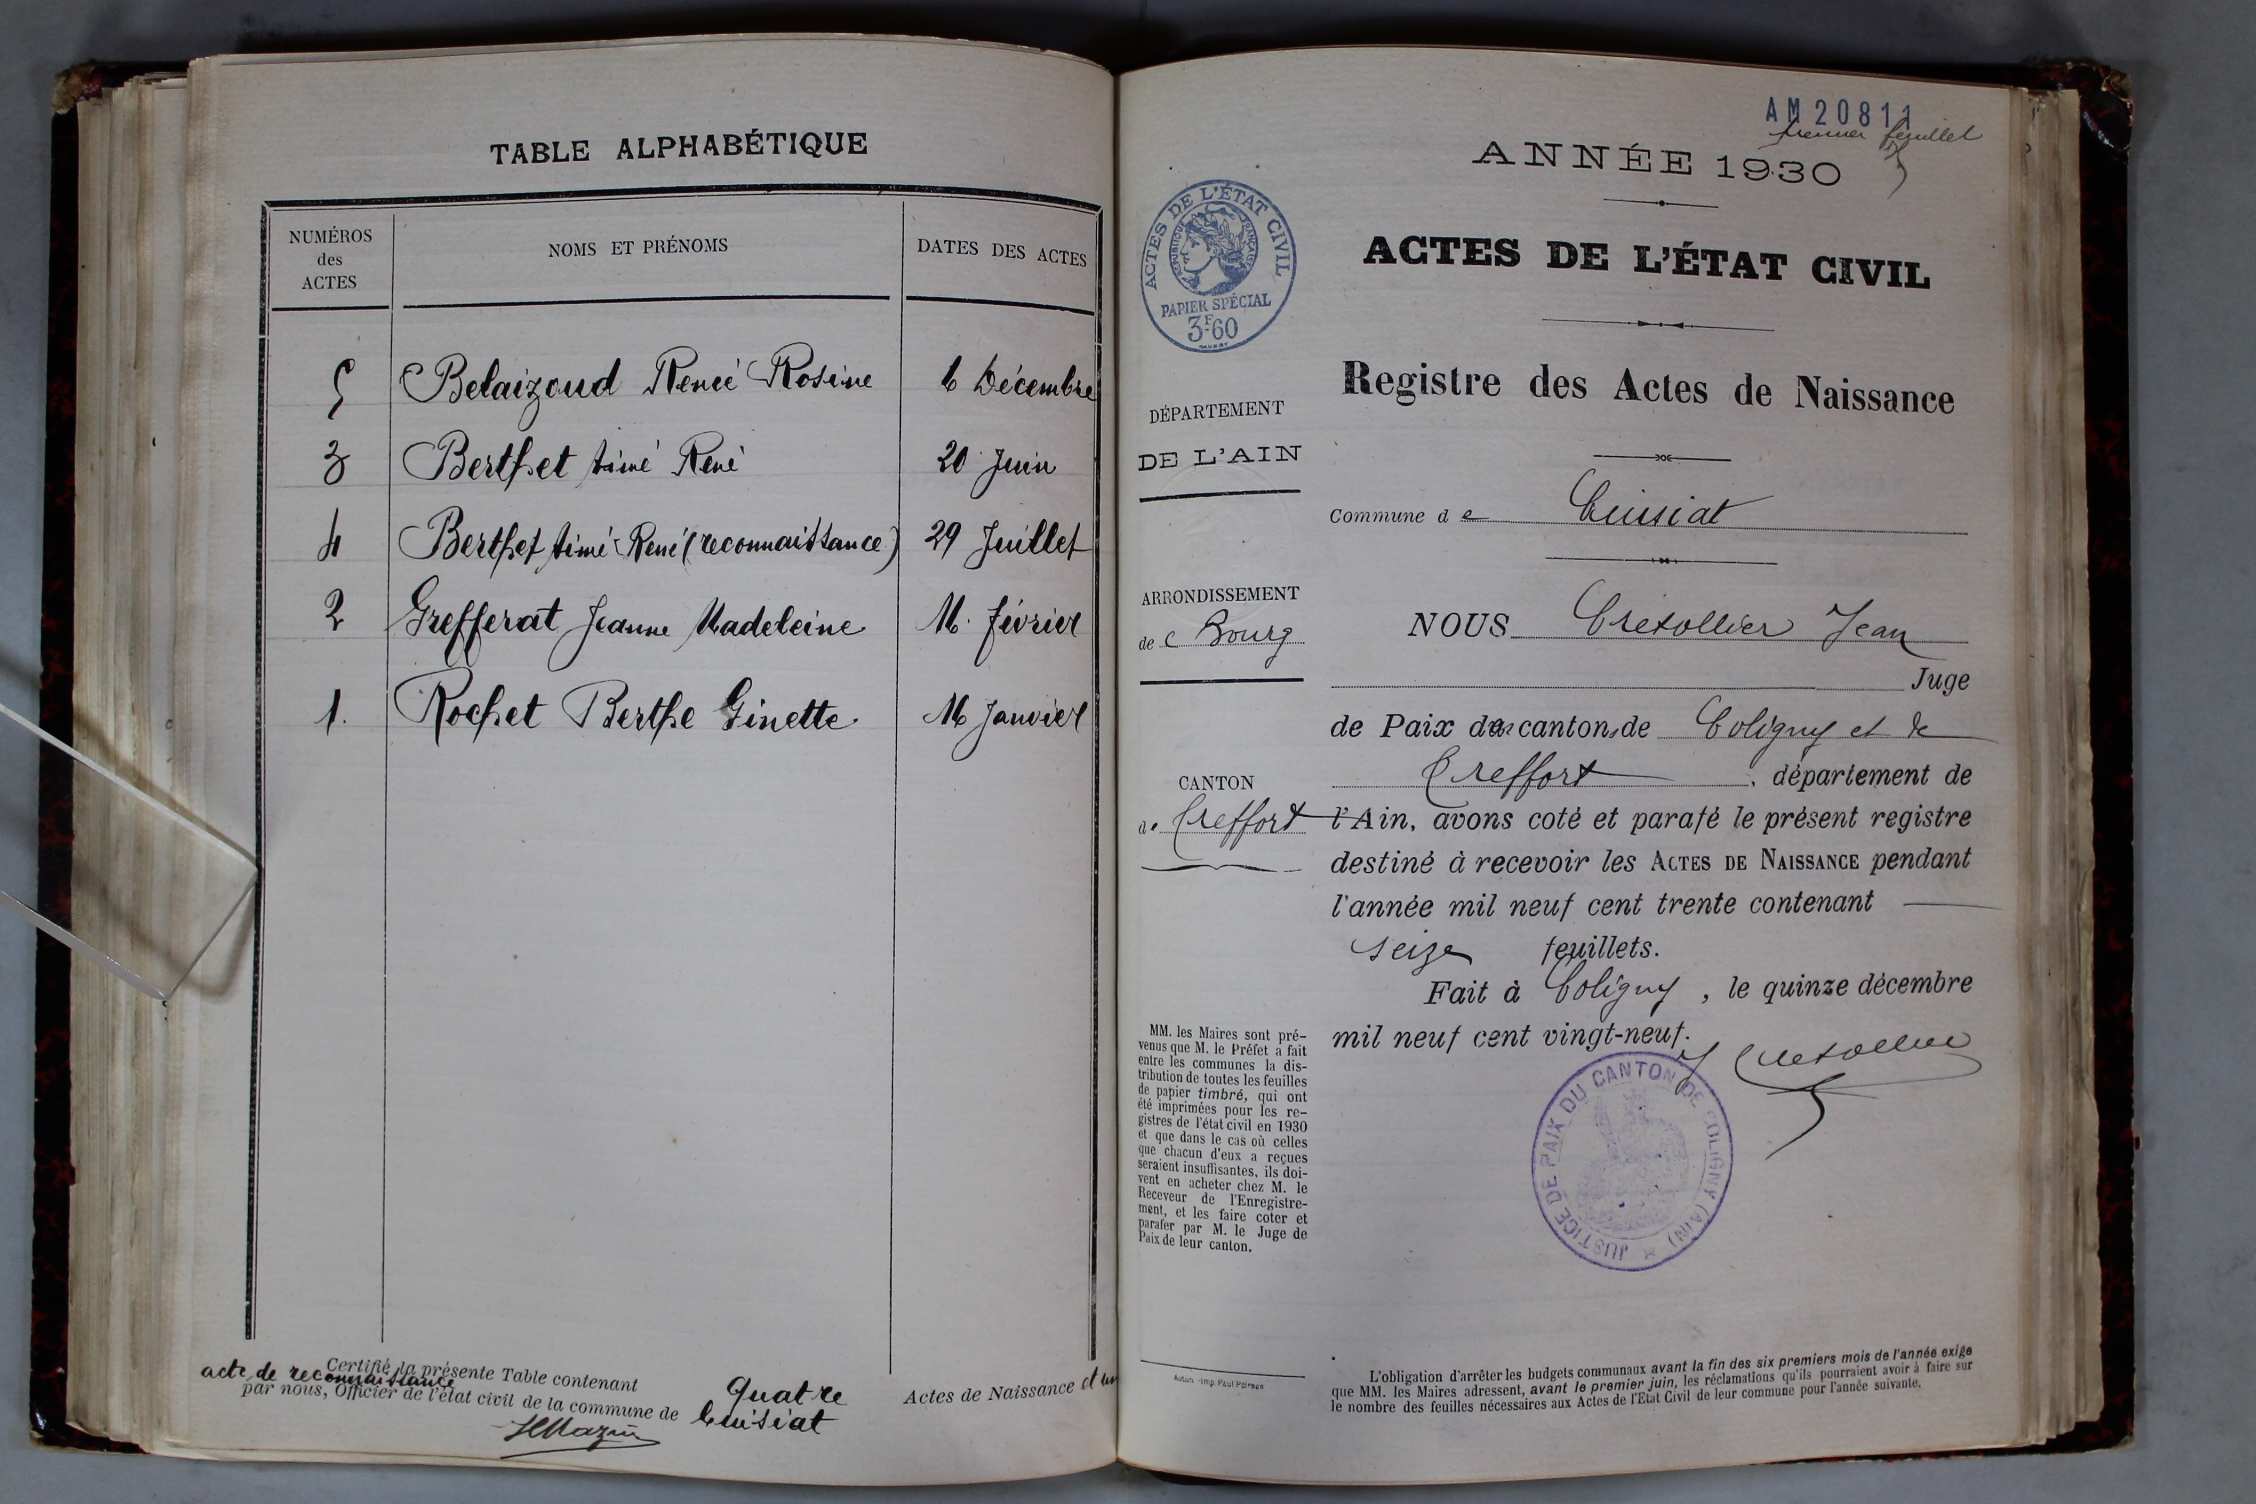 TABLE ALPHABÉTIQUE
NUMÉROS
des
ACTES
NOMS ET PRÉNOMS
DATES DES ACTES
5 Belaizoud Renée Rosine 6 Décembre
3 Berthet Aimé René 20 Juin
4 Berthet Aimé René (reconnaissance) 29 Juillet
2 Grefferat Jeanne Madeleine février
1. Rochet Berthe Ginette Janvier
Certifié la présente Table contenant Quatre Actes de Naissance et un
acte de reconnaissance
par nous, Officier de l'état civil de la commune de Cuisiat
AM 20811
premier feuillet
ANNÉE 1930
ACTES DE L'ÉTAT CIVIL
RÉPUBLIQUE FRANÇAISE
PAPIER SPÉCIAL
3F60
ACTES DE L'ÉTAT CIVIL
Registre des Actes de Naissance
DÉPARTEMENT
DE L'AIN
Commune de Cuisiat
ARRONDISSEMENT
de Bourg
CANTON
de Treffort
NOUS Jean
Juge
de Paix des cantons de Coligny et de
Treffort, département de
l'Ain, avons coté et parafé le présent registre
destiné à recevoir les ACTES DE NAISSANCE pendant
l'année mil neuf cent trente contenant
seize feuillets.
Fait à Coligny, le quinze décembre
mil neuf cent vingt-neuf.
JUSTICE DE PAIX DU CANTON DE COLIGNY (AIN)
MM. les Maires sont pré-
venus que M. le Préfet a fait
entre les communes la dis-
tribution de toutes les feuilles
de papier timbré, qui ont
été imprimées pour les re-
gistres de l'état civil en 1930
et que dans le cas où celles
que chacun d'eux a reçues
seraient insuffisantes, ils doi-
vent en acheter chez M. le
Receveur de l'Enregistre-
ment, et les faire coter et
parafer par M. le Juge de
Paix de leur canton.
L'obligation d'arrêter les budgets communaux avant la fin des six premiers mois de l'année exige
que MM. les Maires adressent, avant le premier juin, les réclamations qu'ils pourraient avoir à faire sur
le nombre des feuilles nécessaires aux Actes de l'Etat Civil de leur commune pour l'année suivante.